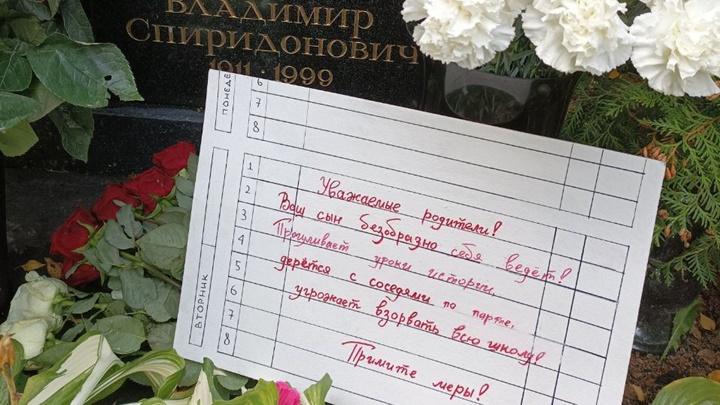 Владимир
Спиридонович
1911 - 1999
ПОНЕДЕ
6
7
8
ВТОРНИК
1
2
3
4
5
6
7
8
Уважаемые родители!
Ваш сын безобразно себя ведёт!
Прогуливает уроки истории,
дерётся с соседями по парте,
угрожает взорвать всю школу!
Примите меры!